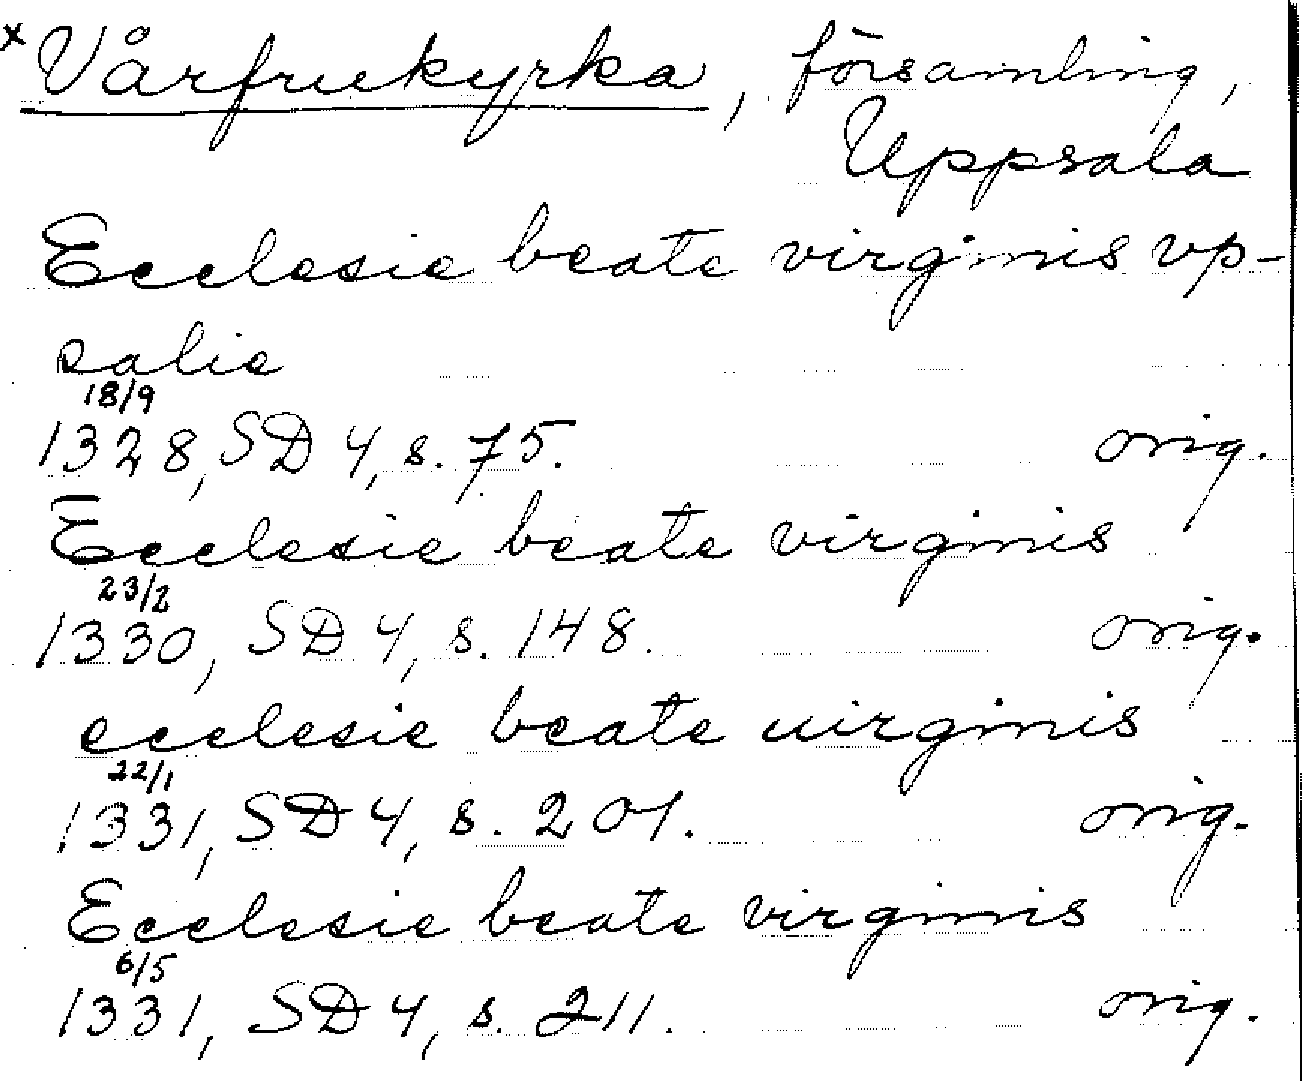 x Vårfrukyrka, församling,
Uppsala
Ecclesie beate virginis vp-
salie
18/9
1328, SD 4, s. 75. orig.
Ecclesie beate virginis
23/2
1330, SD 4, s. 148. orig.
ecclesie beate uirginis
22/1
1331, SD 4, s. 201. orig.
Ecclesie beate virginis
6/5
1331, SD 4, s. 211. orig.